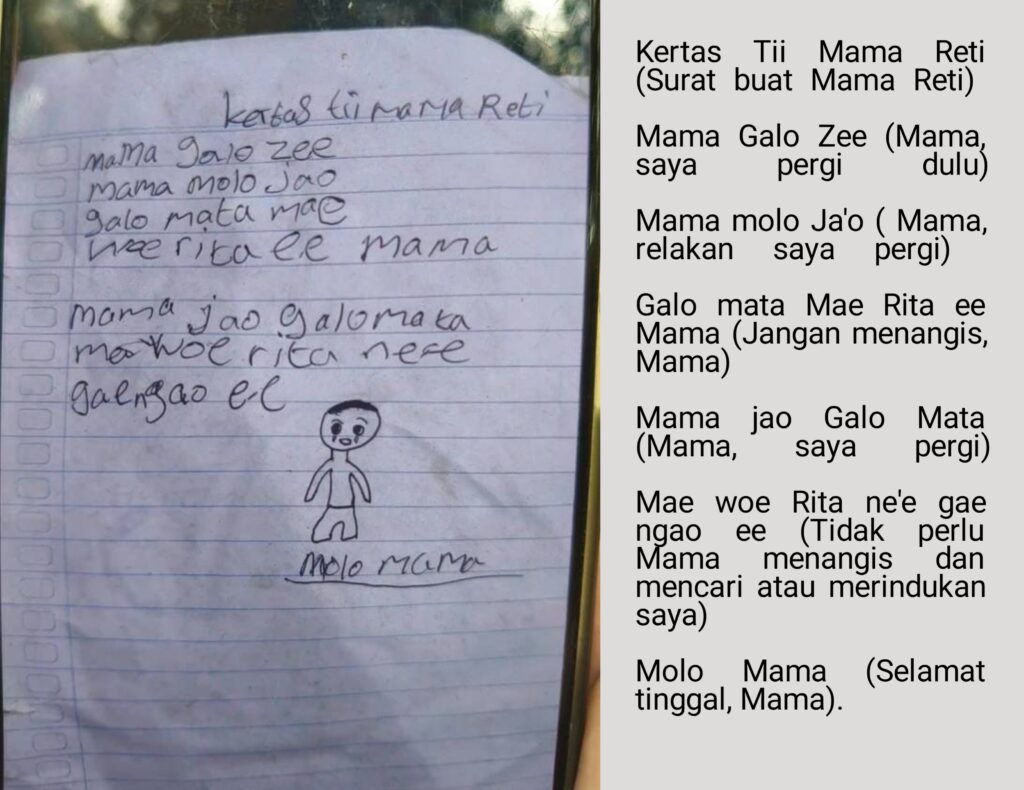 Kertas tii mama Reti
mama galo zee
mama molo jao
galo mata mae
woe rita ee mama
mama jao galo mata
mae woe rita nee
gaengao ee
molo mama
Kertas Tii Mama Reti
(Surat buat Mama Reti)
Mama Galo Zee (Mama,
saya pergi dulu)
Mama molo Ja'o ( Mama,
relakan saya pergi)
Galo mata Mae Rita ee
Mama (Jangan menangis,
Mama)
Mama jao Galo Mata
(Mama, saya pergi)
Mae woe Rita ne'e gae
ngao ee (Tidak perlu
Mama menangis dan
mencari atau merindukan
saya)
Molo Mama (Selamat
tinggal, Mama).